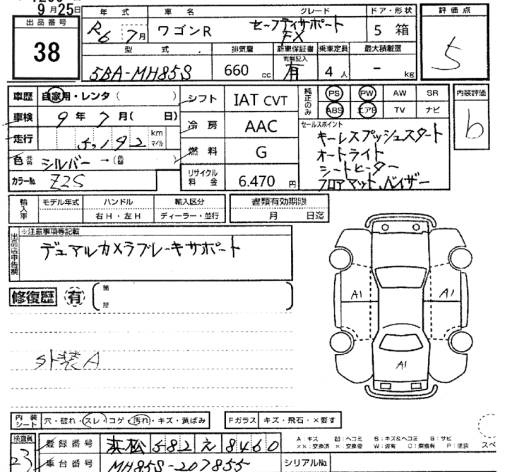 9月25日
出品番号
38
年式 車名 グレード ドア・形状
R6 7月 ワゴンR セーフティサポート FX 5 箱
型式 排気量 新車保証書 乗車定員 最大積載量
5BA-MH85S 660cc 有 4人 - kg
評価点
5
車歴 自家用・レンタ( )
車検 9年7月( )日
走行 km マイル
色 シルバー
カラーNo. Z2S
シフト IAT CVT
冷房 AAC
燃料 G
リサイクル料金 6.470円
純正のみ PS PW AW SR
ABS エアB TV ナビ
セールスポイント
キーレスプッシュスタート
オートライト
シートヒーター
フロアマット,バイザー
内装評価
b
輸入車 モデル年式 ハンドル 輸入区分
右H・左H ディーラー・並行
書類有効期限
月 日迄
※注意事項等記載
デュアルカメラブレーキサポート
修復歴 有
外装A
A1 A1
A1
内装シート 穴・破れ・スレ・コゲ・汚れ・キズ・黄ばみ
Fガラス キズ・飛石・×要す
検査員
23
登録番号 浜松582え8460
車台番号 MH85S-207855
シリアルNo.